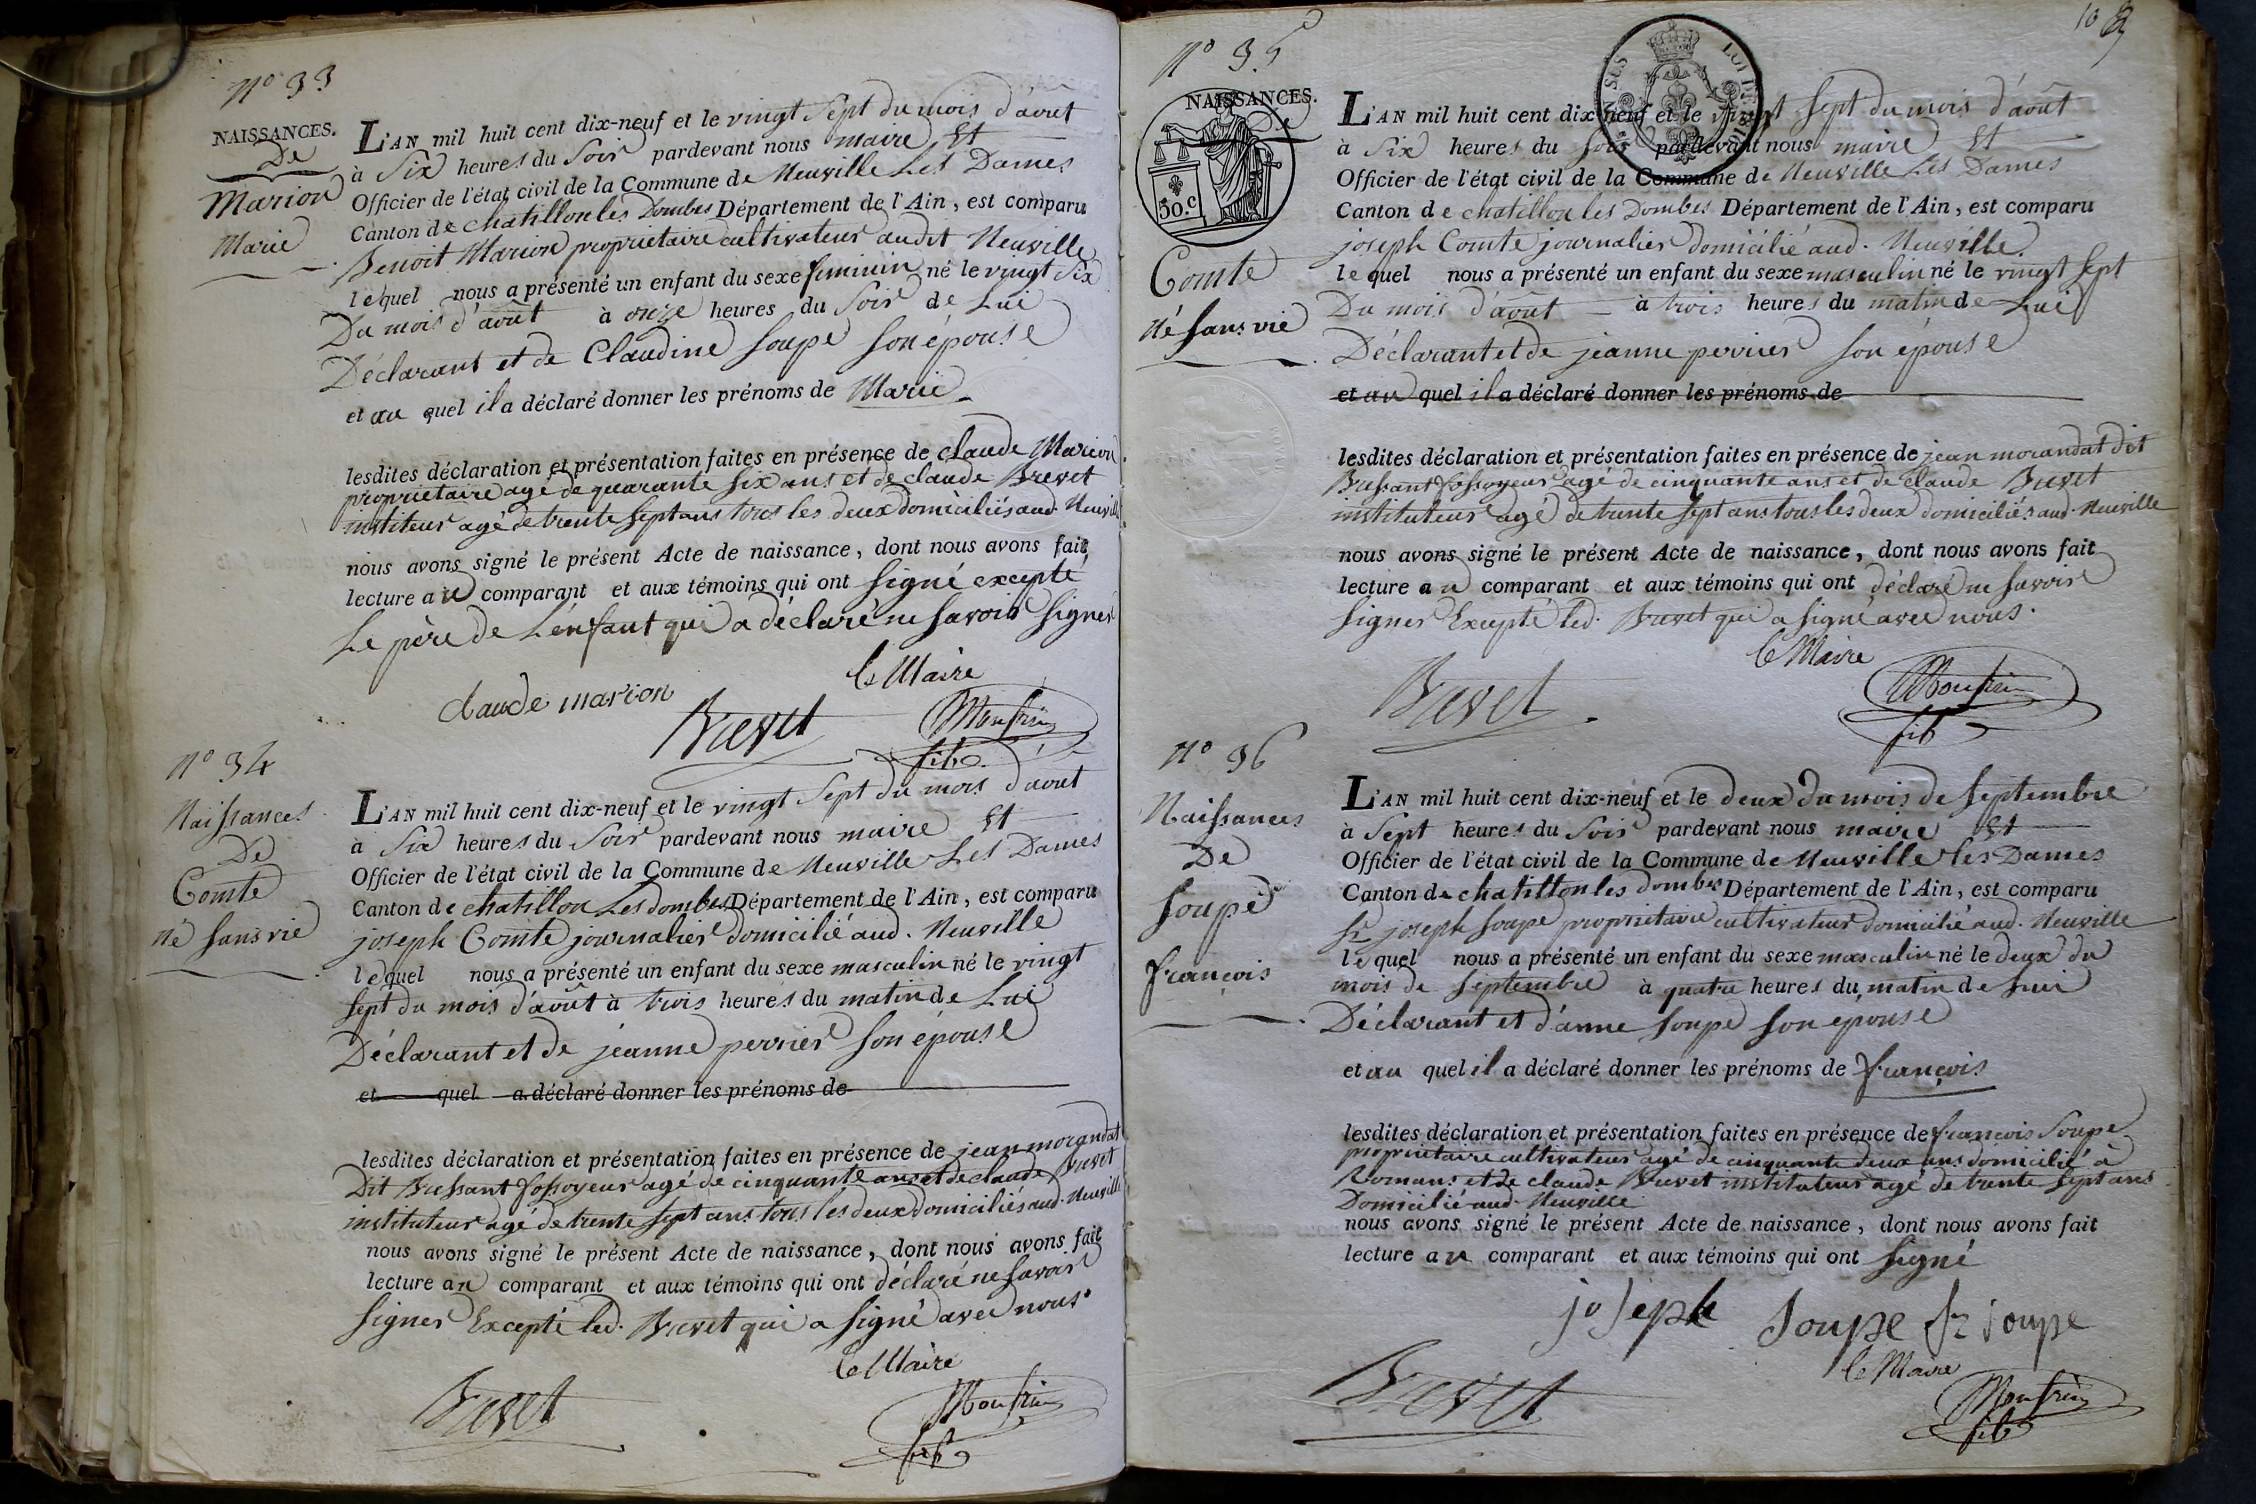 N° 33
NAISSANCES.
De
Marion
Marie
L'AN mil huit cent dix-neuf et le vingt sept du mois d'août
à Six heures du Soir pardevant nous maire Et
Officier de l'état civil de la Commune de Neuville Les Dames
Canton de chatillon les Dombes Département de l'Ain, est comparu
Benoit Marion proprietaire cultivateur audit Neuville
lequel nous a présenté un enfant du sexe feminin né le vingt Six
Du mois d'août à onze heures du Soir de Lui
Déclarant et de Claudine Soupe son épouse
et au quel il a déclaré donner les prénoms de Marie
lesdites déclaration et présentation faites en présence de claude Marion
proprietaire agé de quarante six ans et de claude Brevet
instituteur agé de trente sept ans tous les deux domiciliés aud. Neuville
nous avons signé le présent Acte de naissance, dont nous avons fait
lecture au comparant et aux témoins qui ont signé excepté
Le père de L'énfant qui a déclaré ne savoir signer
le Maire
claude marion
Brevet
Monfrin
fils
N° 34
Naissances
De
Comte
né sans vie
L'AN mil huit cent dix-neuf et le vingt sept du mois d'août
à Six heures du Soir pardevant nous maire Et
Officier de l'état civil de la Commune de Neuville Les Dames
Canton de chatillon Les dombes Département de l'Ain, est comparu
joseph Comte journalier domicilié aud. Neuville
lequel nous a présenté un enfant du sexe masculin né le vingt
sept du mois d'août à trois heures du matin de Lui
Déclarant et de jeanne perrier son épouse
et quel a déclaré donner les prénoms de
lesdites déclaration et présentation faites en présence de jean morandat
Dit Bressant fossoyeur agé de cinquante ans et de claude Brevet
instituteur agé de trente sept ans tous les deux domiciliés aud. Neuville
nous avons signé le présent Acte de naissance, dont nous avons fait
lecture au comparant et aux témoins qui ont déclaré ne savoir
signer Excepté led. Brevet qui a signé avec nous.
le Maire
Brevet
Monfrin
fils
10
N° 35
NAISSANCES.
50.c
LOI DE 1816
Comte
né sans vie
L'AN mil huit cent dix-neuf et le vingt sept du mois d'août
à Six heures du soir pardevant nous maire Et
Officier de l'état civil de la Commune de Neuville Les Dames
Canton de chatillon les Dombes Département de l'Ain, est comparu
joseph Comte journalier domicilié aud. Neuville.
lequel nous a présenté un enfant du sexe masculin né le vingt sept
Du mois d'août à trois heures du matin de Lui
Déclarant et de jeanne perrier son épouse
et au quel il a déclaré donner les prénoms de
lesdites déclaration et présentation faites en présence de jean morandat dit
Bressant fossoyeur agé de cinquante ans et de claude Brevet
instituteur agé de trente sept ans tous les deux domiciliés aud. Neuville
nous avons signé le présent Acte de naissance, dont nous avons fait
lecture au comparant et aux témoins qui ont déclaré ne savoir
signer Excepté led. Brevet qui a signé avec nous.
le Maire
Brevet
Monfrin
fils
N° 36
Naissances
De
Soupe
françois
L'AN mil huit cent dix-neuf et le deux du mois de septembre
à Sept heures du Soir pardevant nous maire Et
Officier de l'état civil de la Commune de Neuville les Dames
Canton de chatillon les dombes Département de l'Ain, est comparu
Sr joseph Soupe proprietaire cultivateur domicilié aud. Neuville
lequel nous a présenté un enfant du sexe masculin né le deux du
mois de septembre à quatre heures du matin de Lui
Déclarant et d'anne Soupe son épouse
et au quel il a déclaré donner les prénoms de françois
lesdites déclaration et présentation faites en présence de françois Soupe
proprietaire cultivateur agé de cinquante deux ans domicilié à
Romans et de claude Brevet instituteur agé de trente sept ans
Domicilié aud. Neuville
nous avons signé le présent Acte de naissance, dont nous avons fait
lecture au comparant et aux témoins qui ont signé
joseph Soupe fr soupe
le Maire
Brevet
Monfrin
fils